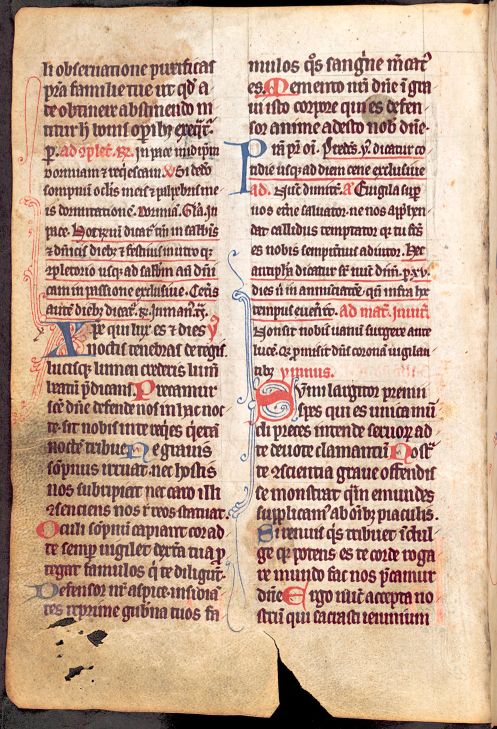 li observatione purificas
pra familie tue ut qd a
te obtinere abstinendo ni
titur h bonis opibz exeqtr.
p. ad cplet. R. In pace in idipm
dormiam et reqiescam. V Si dedo
sompnum oclis meis et palpebris me
is dormitatione. Dormia. Gla. In
pace. Hoc Rm dicat tm in sabbis
et dnicis diebz et festivis
cpletorio usq ad sabbm an dni
cam in passione exclusive. Ceteris
autem diebz dicatr. R. In man. V
Xpe qui lux es et dies
noctis tenebras detegis.
lucisq lumen crederis lum
beatu pdicans Precamur
sce dne defende nos in hac noc
te. sit nobis in te reqies qieta
nocte tribue Ne gravis
sopnus irruat. nec hostis
nos subripiat nec caro illi
sentiens nos reos statuat.
Oculi sopnu capiant cor ad
te semp vigilet dextra tua p
tegat famulos q te diligut.
Defensor nr aspice insidia
tes reprime gubna tuos fa
mulos qs sangine mcat9
es. Memento nri dne i gra
vi isto corpore qui es defen
sor anime adesto nob dne.
Predcs. V. dicatur co
tidie usq ad diem cene exclusive
ad. Nuc dimitt. A Evigila sup
nos etne salvator. ne nos apphen
dat callidus temptator. q tu fcs
es nobis sempiternus adiutor. Hec
antipha dicatur
dies in annuciatoe. qn infra hc
tempus evenerit. ad mat. Invit.
Non sit nobis vanu surgere ante
luce. q pmisit dns corona vigilan
tibz ymnus.
Sumi largitor premii
spes qui es unica mu
di preces intende servor ad
te devote clamantiu Nost
te cscientia grave offendis
se monstrat qm emundes
supplicam ab oibz piaculis.
Si renuis qs tribuet idul
ge q potens es te corde roga
re mundo fac nos pcamur
dne Ergo nuc accepta no
strum qui sacrasti ieiunium